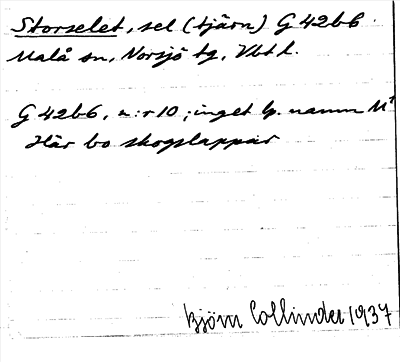 Storselet, sel (tjärn) G 42b6
Malå sn, Norsjö tg, Vbt l.
G 42b6, n:r 10; inget lp. namn M¹
Här bo skogslappar
Björn Collinder 1937